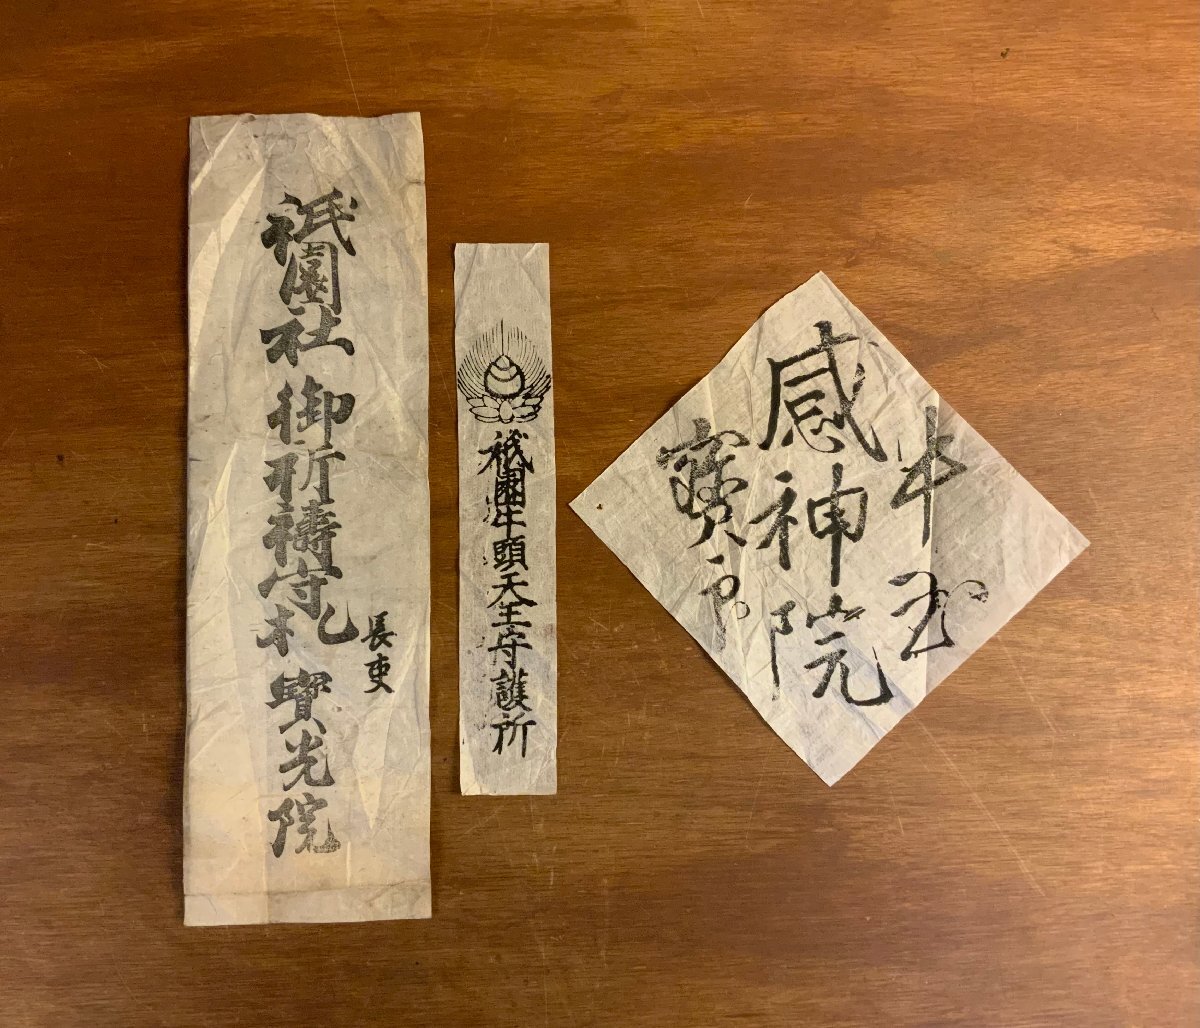 祇園社御祈禱守札
長吏
寳光院
祇園牛頭天王守護所
牛玉
感神院
寳印